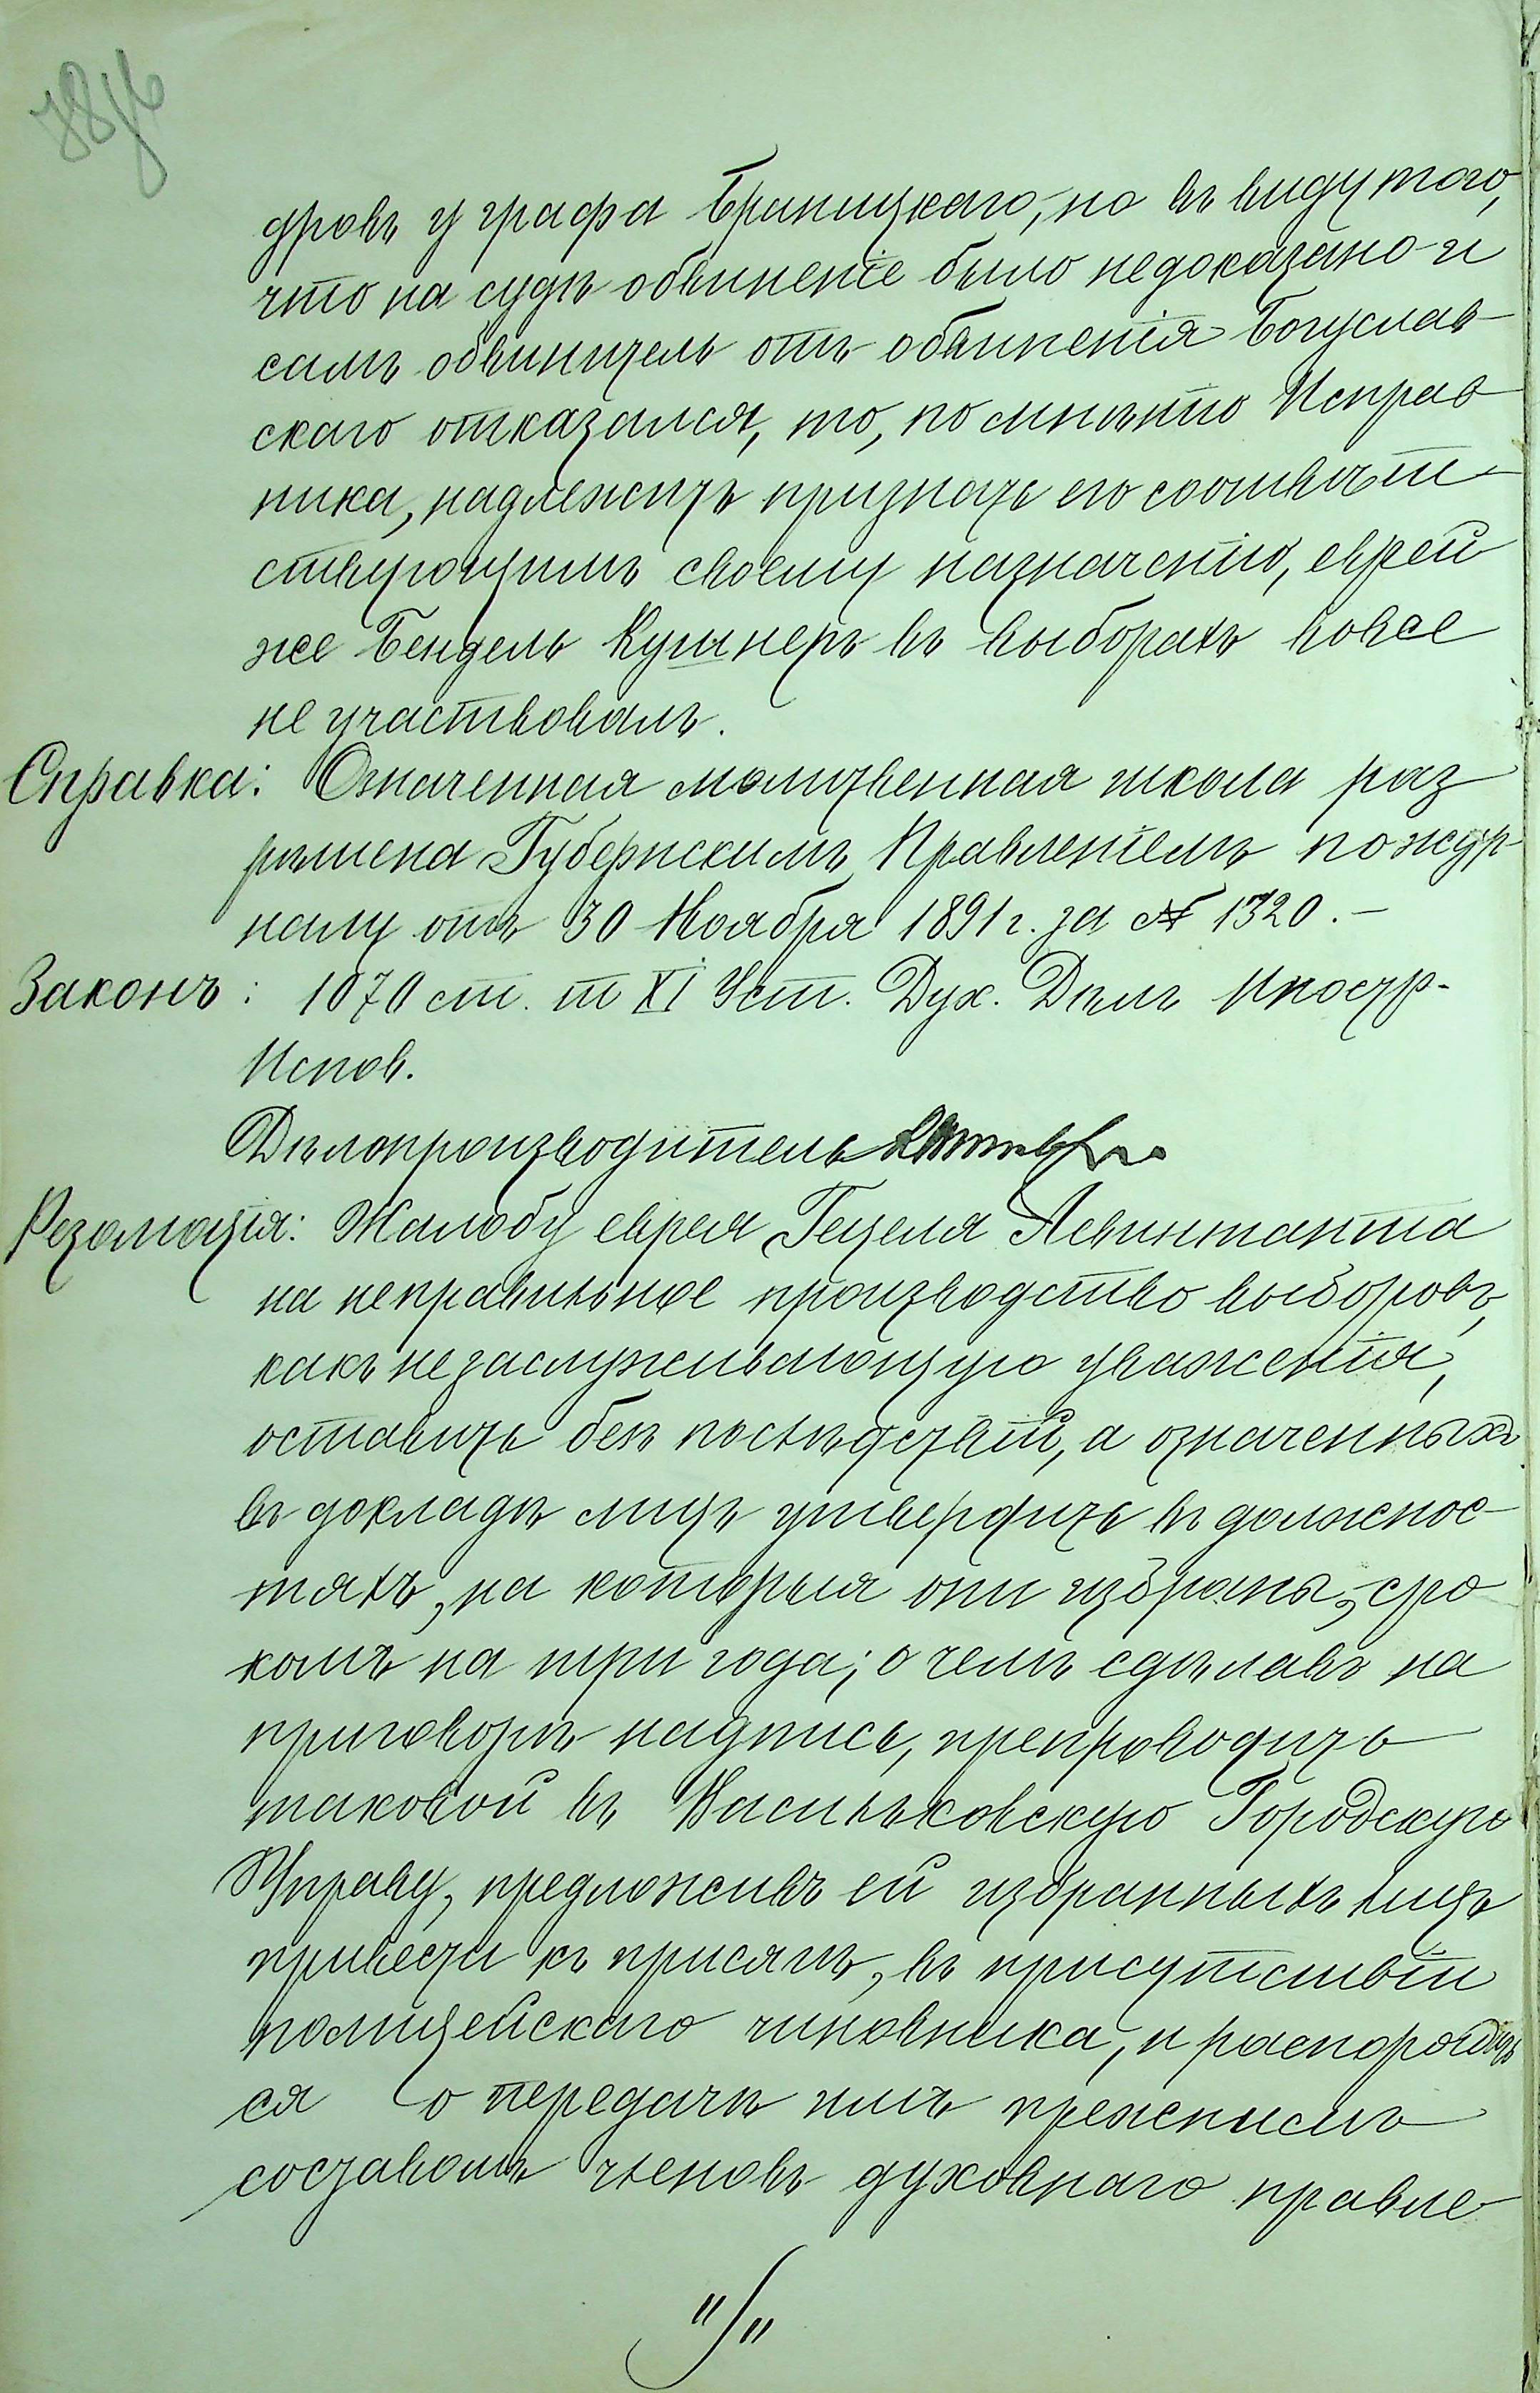 дровъ у графа Браницкаго, но въ виду того,
что на судѣ обвиненіе было недоказано и
самъ обвинитель отъ обвиненія Богуслав-
скаго отказался, то, по мнѣнію Исправ-
ника, надлежитъ признать его соотвѣт-
ствующимъ своему назначенію, еврей
же Бендель Кушнеръ въ выборахъ вовсе
не участвовалъ.
Справка: Означенная молитвенная школа раз
рѣшена Губернскимъ Правленіемъ по жур-
налу отъ 30 Ноября 1891 г. за № 1320. –
Законъ: 1070 ст. т XI Уст. Дух. Дѣлъ Иностр.
Испов.
Дѣлопроизводитель
Резолюція: Жалобу еврея Гецеля Левинтанта
на неправильное производство выборовъ,
какъ незаслуживающую уваженія,
оставить безъ послѣдствій, а означенныхъ
въ докладѣ лицъ утвердить въ должнос-
тяхъ, на которыя они избраны, сро
комъ на три года; о чемъ сдѣлавъ на
приговорѣ надпись, препроводить
таковой въ Васильковскую Городскую
Управу, предложивъ ей избранныхъ лицъ
привести къ присягѣ, въ присутствіи
полицейскаго чиновника, и распорядить
ся о передачѣ имъ прежнимъ
составомъ членовъ духовнаго правле-